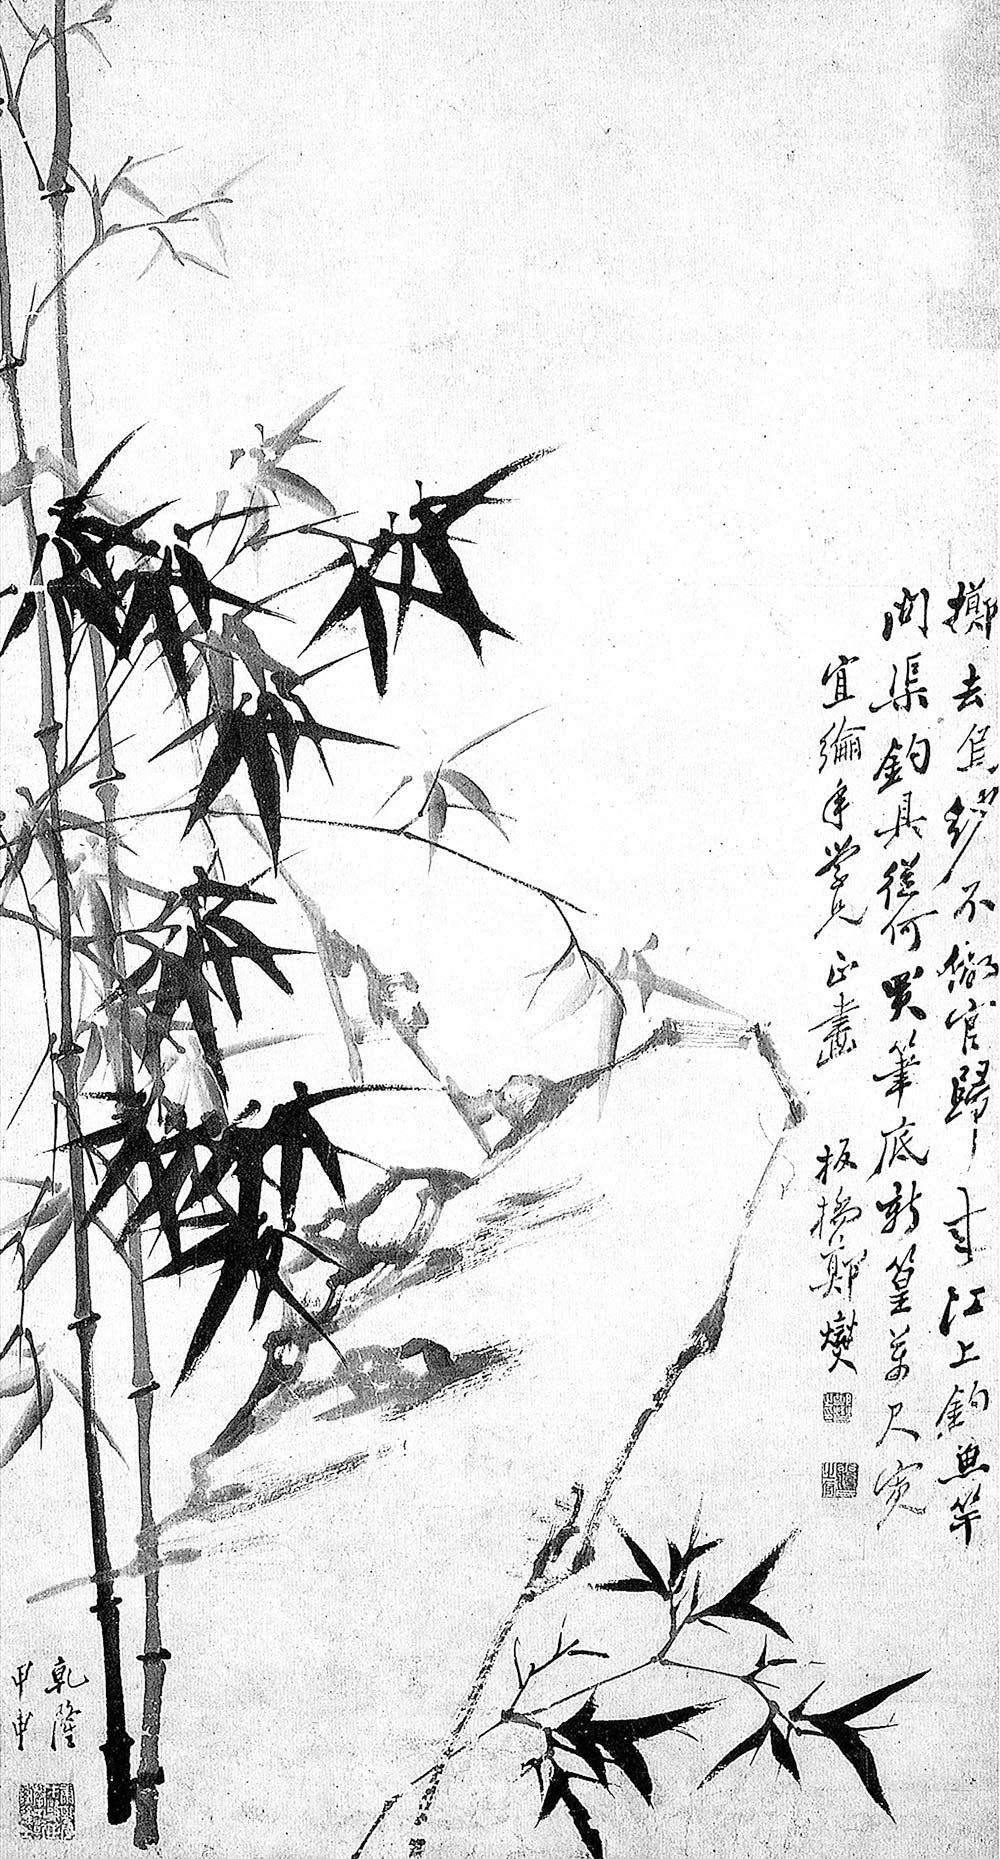 擲去烏紗不做官歸來江上釣魚竿
問渠釣具從何買筆底新篁萬尺寬
宜綸年學兄正畫 板橋鄭燮
乾隆
甲申